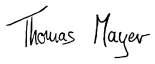 Thomas Mayer